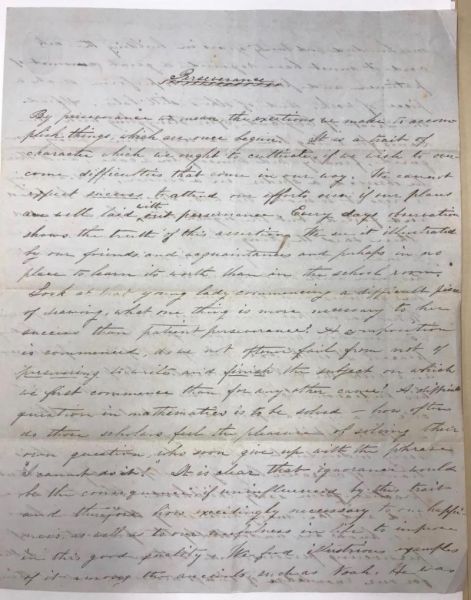 Perseverance
By perseverance we mean, the exertions we make to accom
plish things, which are once begun. It is a trait of
character which we ought to cultivate, if we wish to over
come difficulties that come in our way. We cannot
expect success to attend our efforts even if our plans
are well laid with out perseverance. Every days observation
shows the truth of this assertion. We see it illustrated
by our friends and acquaintances and perhaps in no
place to learn its worth than in the school room.
Look at that young lady commencing a difficult piece
of sewing, what one thing is more necessary to her
success than patient perseverance? A composition
is commenced, do we not oftener fail from not
persevering to write and finish the subject on which
we first commence than for any other cause? A difficult
question in mathematics is to be solved – how often
do those scholars feel the pleasure of solving their
own question, who soon give up with the phrase
"I cannot do it!" It is clear that ignorance would
be the consequence, if uninfluenced by this trait
and therefore how exceedingly necessary to our happi
ness, as well as to our usefulness in life to improve
in this good quality. We find illustrious examples
of it among the ancients, such as Noah. He was